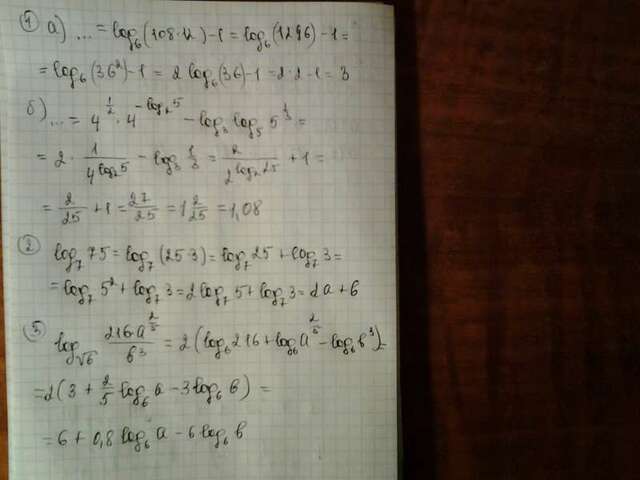 ① а) ... = log₆(108·12) - 1 = log₆(1296) - 1 =
= log₆(36²) - 1 = 2 log₆(36) - 1 = 2·2 - 1 = 3
б) ... = 4^(1/2) · 4^(-log₂5) - log₃ log₅ 5^(1/3) =
= 2 · 1/4^(log₂5) - log₃ 1/3 = 2/2^(log₂25) + 1 =
= 2/25 + 1 = 27/25 = 1 2/25 = 1,08
② log₇ 75 = log₇(25·3) = log₇ 25 + log₇ 3 =
= log₇ 5² + log₇ 3 = 2 log₇ 5 + log₇ 3 = 2a + b
③ log_√6 216·a^(2/5)/b³ = 2(log₆ 216 + log₆ a^(2/5) - log₆ b³) =
= 2(3 + 2/5 log₆ a - 3 log₆ b) =
= 6 + 0,8 log₆ a - 6 log₆ b